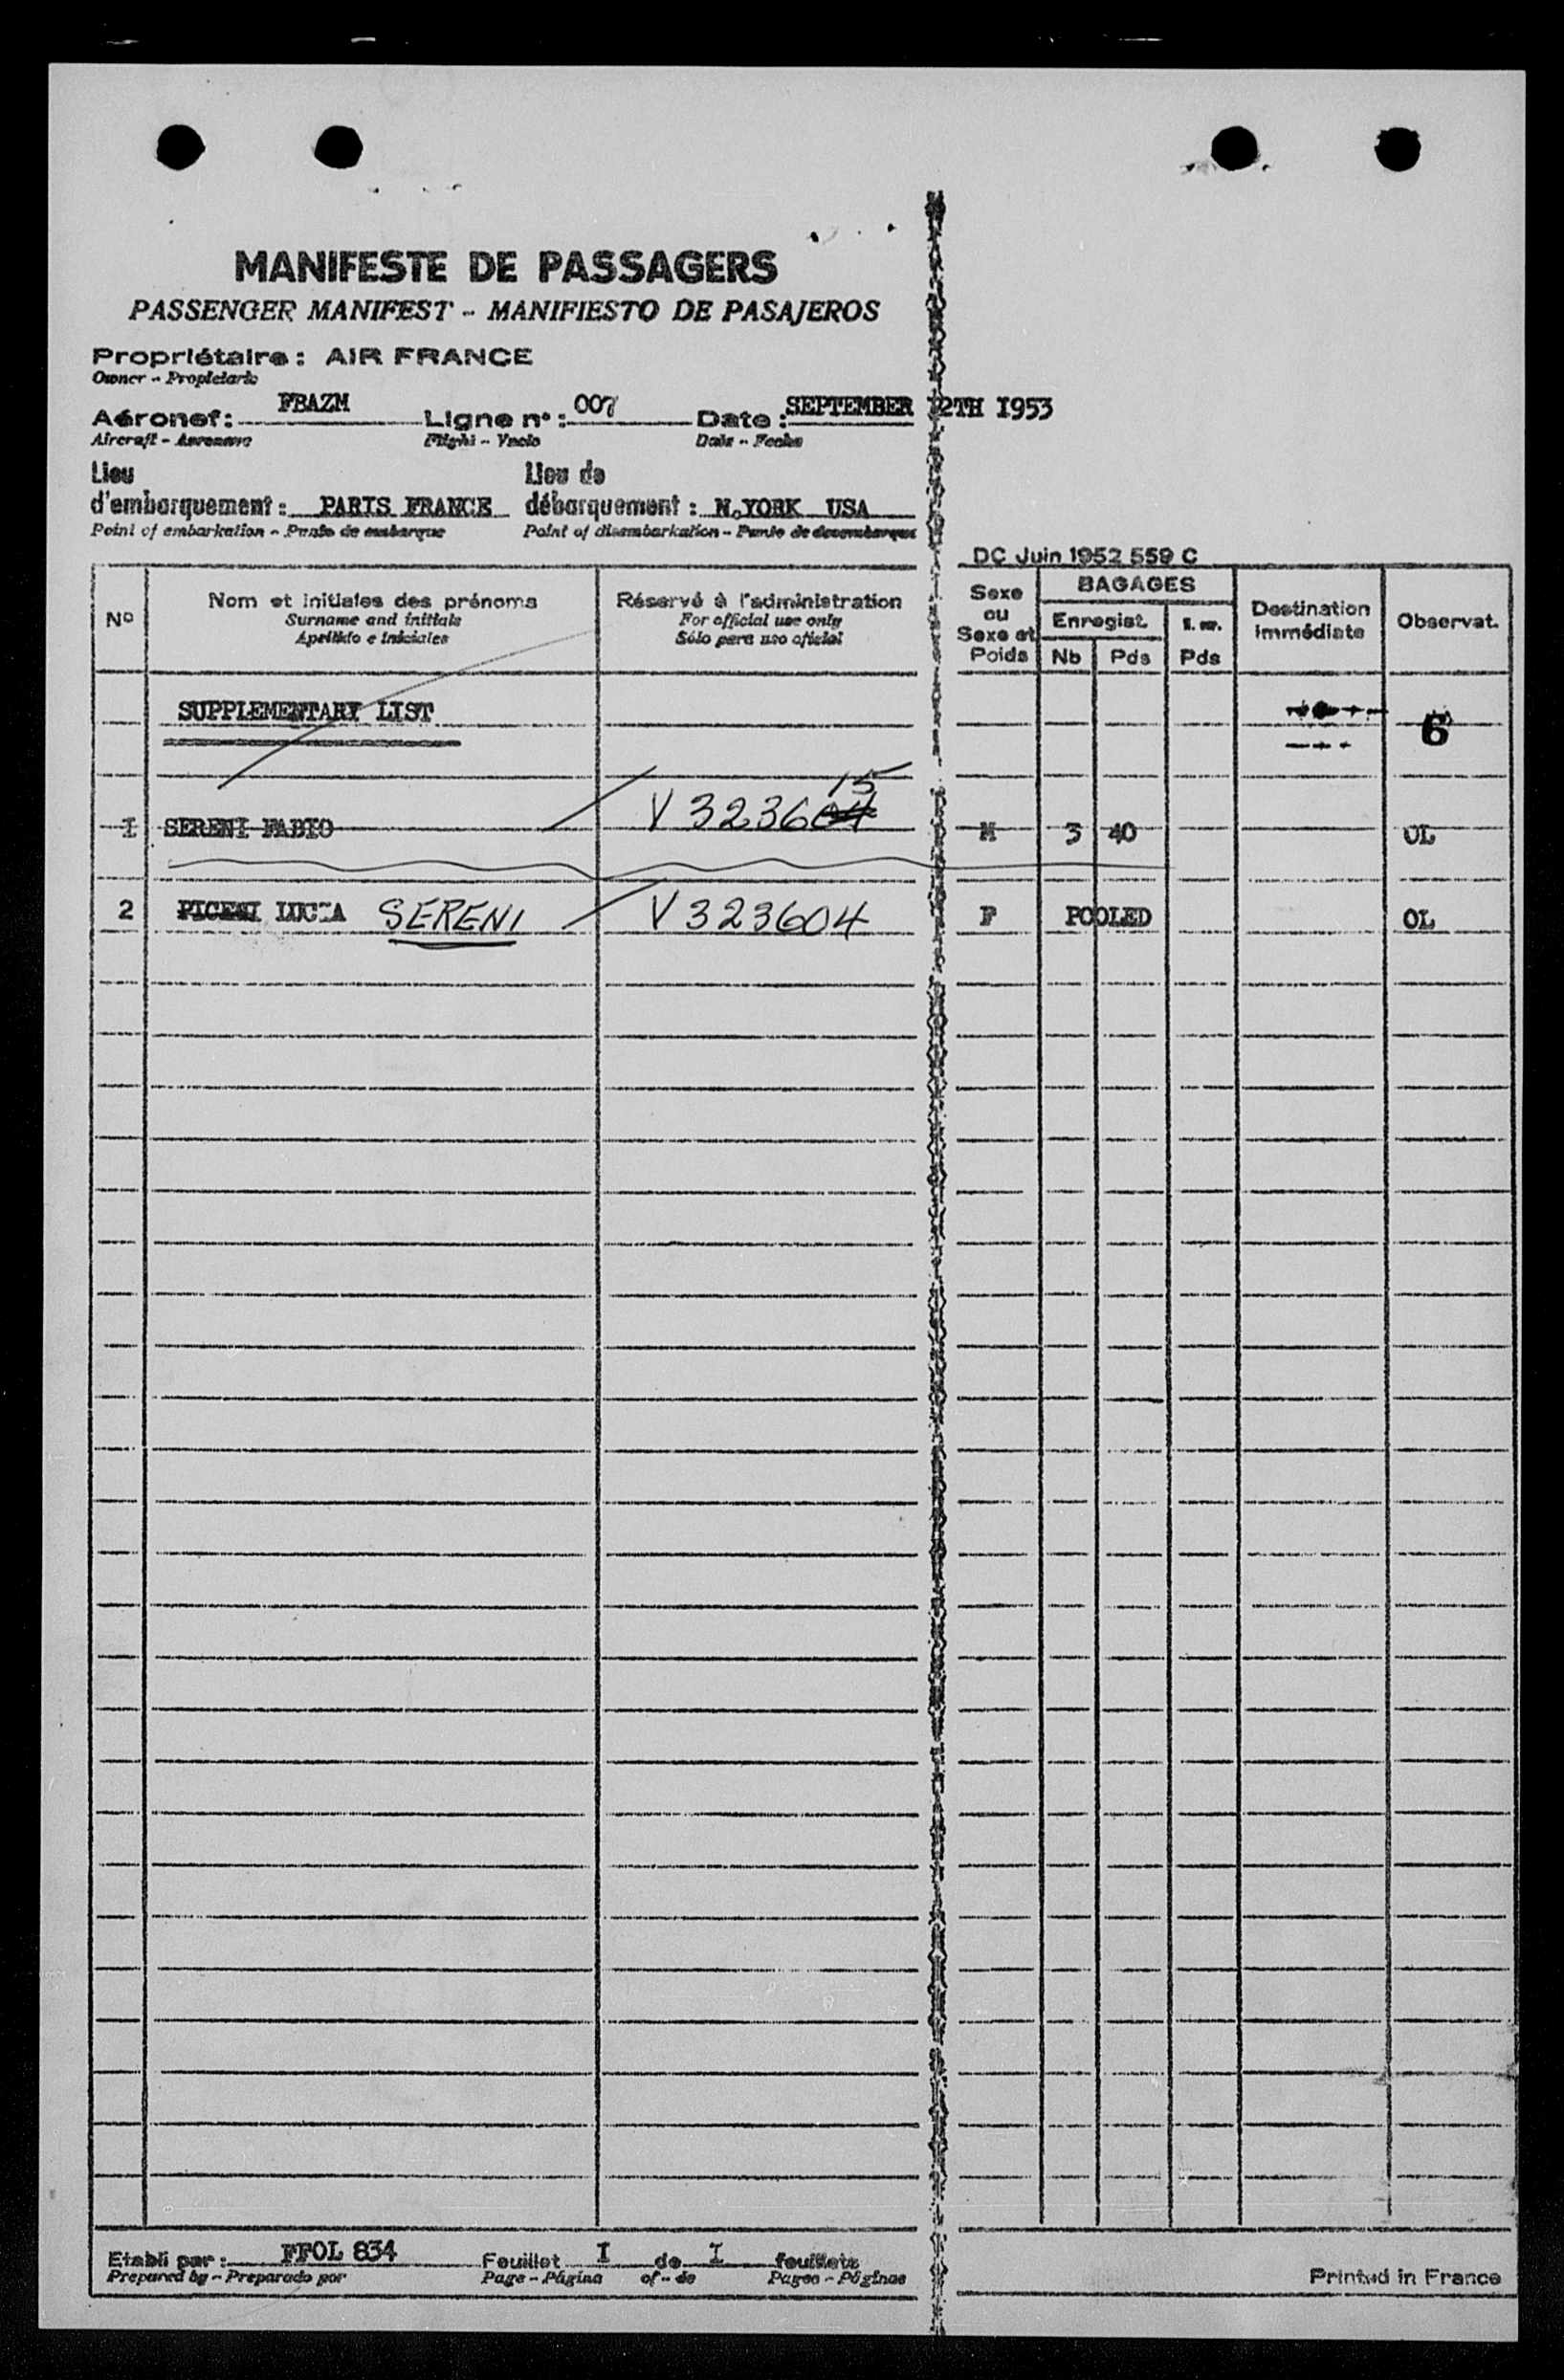 MANIFESTE DE PASSAGERS
PASSENGER MANIFEST - MANIFIESTO DE PASAJEROS
Propriétaire : AIR FRANCE
Owner - Propietario
Aéronef : FBAZM Ligne n° : 007 Date : SEPTEMBER 12TH I953
Aircraft - Aeronave Flight - Vuelo Date - Fecha
Lieu Lieu de
d'embarquement : PARIS FRANCE débarquement : N.YORK USA
Point of embarkation - Punto de embarque Point of disembarkation - Punto de desembarque
DC Juin 1952 559 C
N° Nom et initiales des prénoms Réservé à l'administration Sexe ou Sexe et Poids BAGAGES Destination immédiate Observat.
Surname and initials For official use only Enregist.
Apellido e iniciales Sólo para uso oficial Nb Pds Pds
SUPPLEMENTARY LIST
6
15
I SERENI FABIO V 323604 M 3 40 OL
2 PICENI LUCIA SERENI V 323604 F POOLED OL
Etabli par : FFOL 834 Feuillet I de I feuillets
Prepared by - Preparado por Page - Página of - de Pages - Páginas
Printed in France